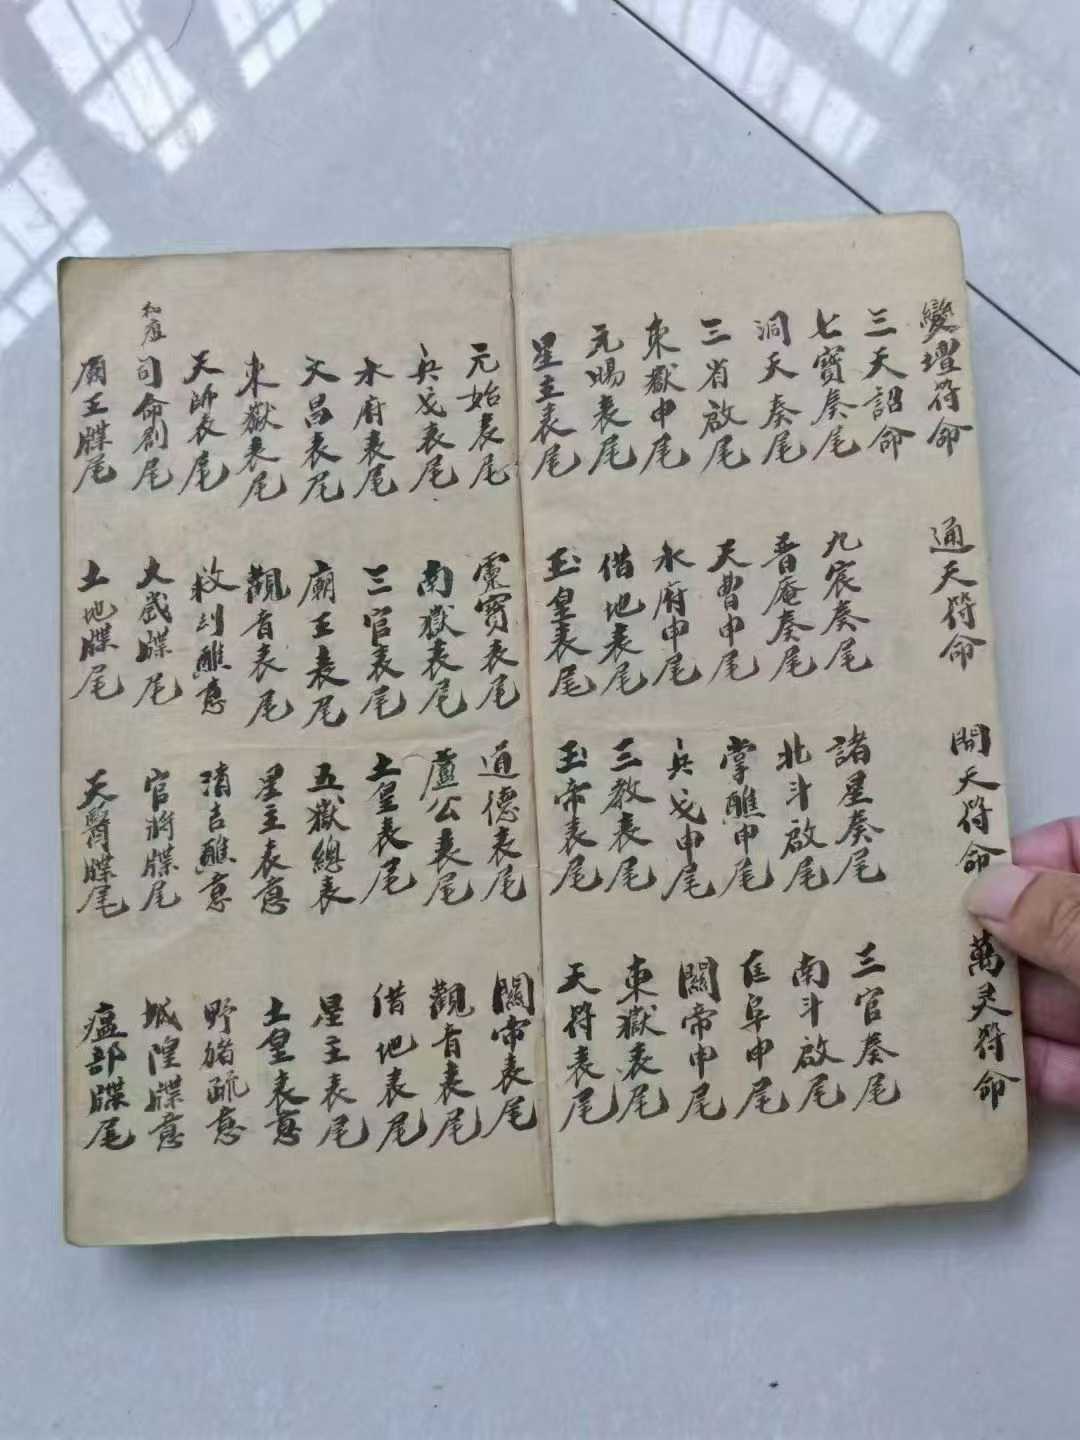 變壇符命 通天符命 開天符命 萬灵符命
三天詔命
七寶奏尾 九宸奏尾 諸星奏尾 三官奏尾
洞天奏尾 普庵奏尾 北斗啟尾 南斗啟尾
三省啟尾 天曹申尾 掌醮申尾 匡阜申尾
東嶽申尾 水府申尾 兵戈申尾 關帝申尾
元賜表尾 借地表尾 三教表尾 東嶽表尾
星主表尾 玉皇表尾 玉帝表尾 天符表尾
元始表尾 靈寶表尾 道德表尾 關帝表尾
兵戈表尾 南嶽表尾 盧公表尾 觀音表尾
水府表尾 三官表尾 土皇表尾 借地表尾
文昌表尾 廟王表尾 五嶽總表 星主表尾
東嶽表尾 觀音表尾 星主表意 土皇表意
天師表尾 救醮意 清吉醮意 野猪疏意
和瘟
司命劄尾 大歲牒尾 官將牒尾 城隍牒意
廟王牒尾 土地牒尾 天醫牒尾 瘟部牒尾